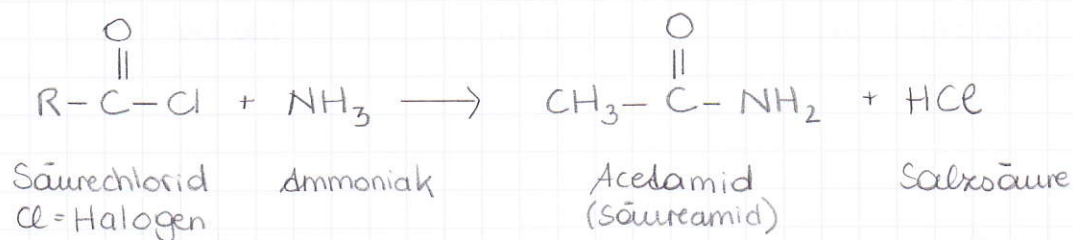 O
||
R – C – Cl + NH₃ ⟶ CH₃ – C – NH₂ + HCl
O
||
Säurechlorid
Cl = Halogen
Ammoniak
Acedamid
(Säureamid)
Salzsäure